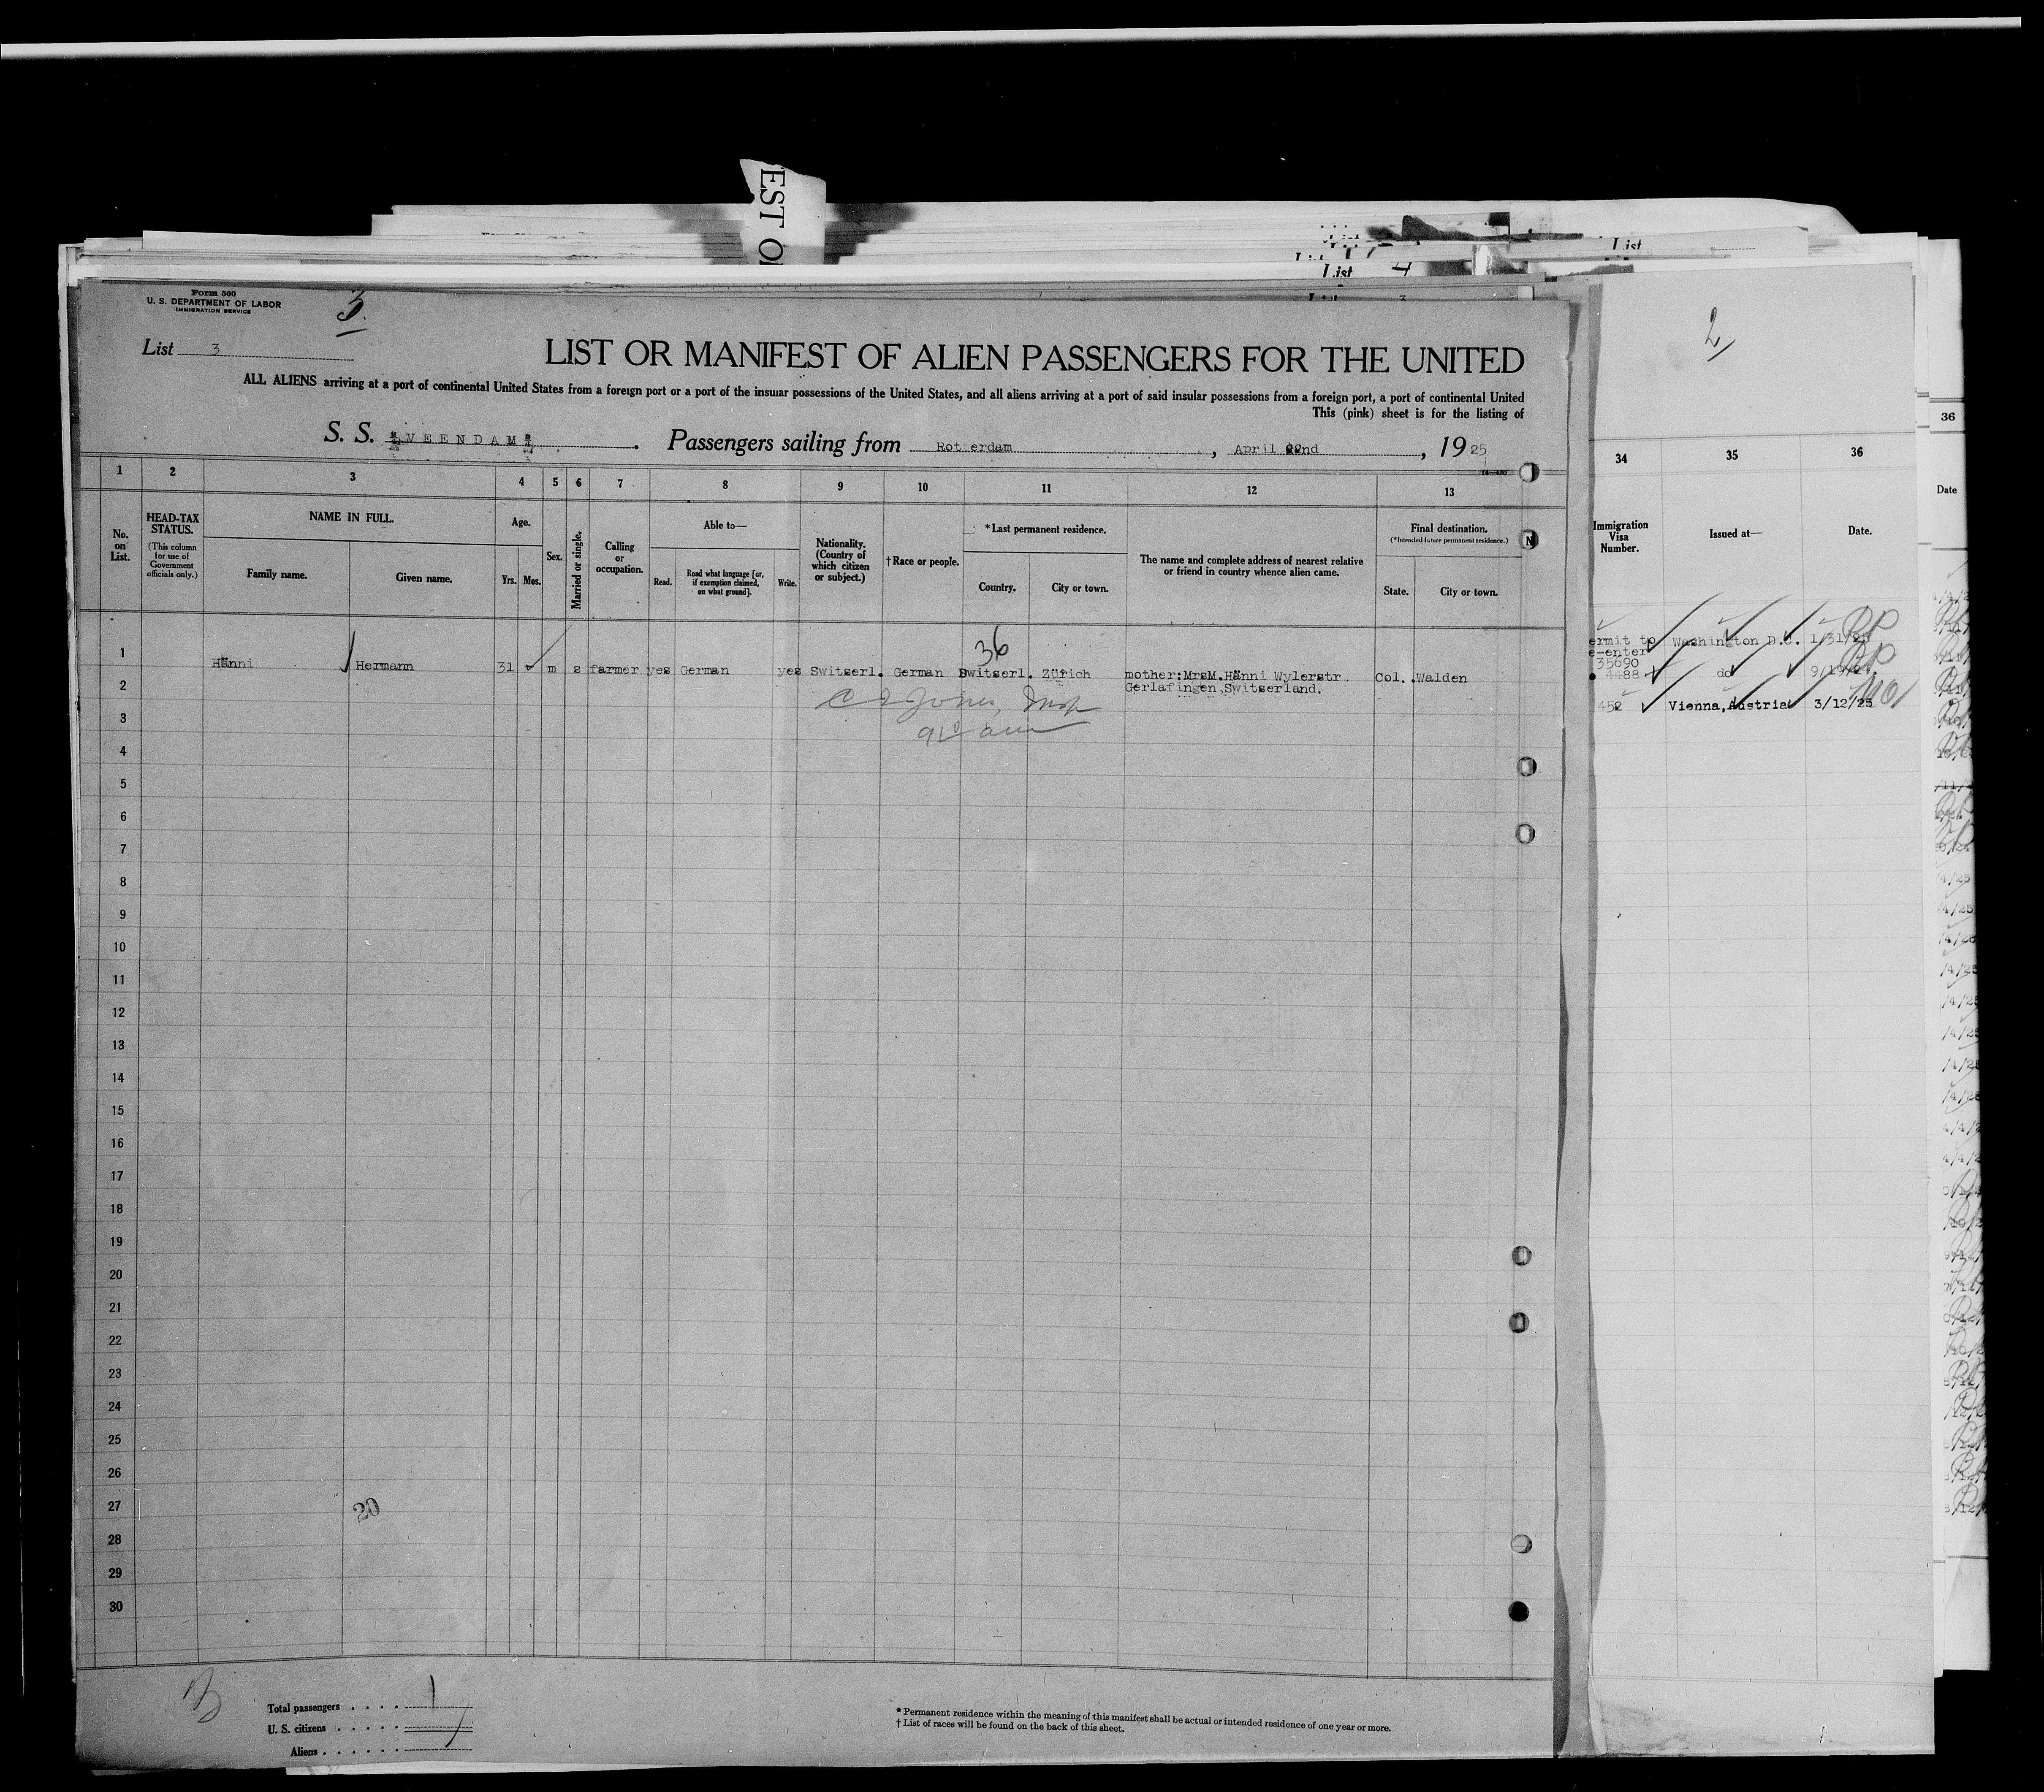 EST O
List
List 4
3
Form 500
U. S. DEPARTMENT OF LABOR
IMMIGRATION SERVICE
3
List 3
LIST OR MANIFEST OF ALIEN PASSENGERS FOR THE UNITED
ALL ALIENS arriving at a port of continental United States from a foreign port or a port of the insular possessions of the United States, and all aliens arriving at a port of said insular possessions from a foreign port, a port of continental United
This (pink) sheet is for the listing of
S. S. "VEENDAM" . Passengers sailing from Rotterdam , April 22nd , 1925
1 2 3 4 5 6 7 8 9 10 11 12 13
No. on List.
HEAD-TAX STATUS.
(This column for use of Government officials only.)
NAME IN FULL.
Family name. Given name.
Age.
Yrs. Mos.
Sex.
Married or single.
Calling or occupation.
Able to—
Read. Read what language [or, if exemption claimed, on what ground]. Write.
Nationality. (Country of which citizen or subject.)
† Race or people.
* Last permanent residence.
Country. City or town.
The name and complete address of nearest relative or friend in country whence alien came.
Final destination.
(* Intended future permanent residence.)
State. City or town.
36
1 Hänni Hermann 31 m s farmer yes German yes Switserl. German Switserl. Zürich mother:MrsM.Hänni Wylerstr. Col. Walden
Gerlafingen,Switserland.
2
C E Jones, Insp
3
4
5
6
7
8
9
10
11
12
13
14
15
16
17
18
19
20
21
22
23
24
25
26
27
20
28
29
30
Total passengers . . . . 1
U. S. citizens . . . . . .
Aliens . . . . . . 1
* Permanent residence within the meaning of this manifest shall be actual or intended residence of one year or more.
† List of races will be found on the back of this sheet.
2
34 35 36
Immigration Visa Number.
Issued at—
Date.
ermit to Washington D.C. 1/31/25
e-enter
35690
4488 do 9/19/24
452 Vienna,Austria 3/12/25
36
Date